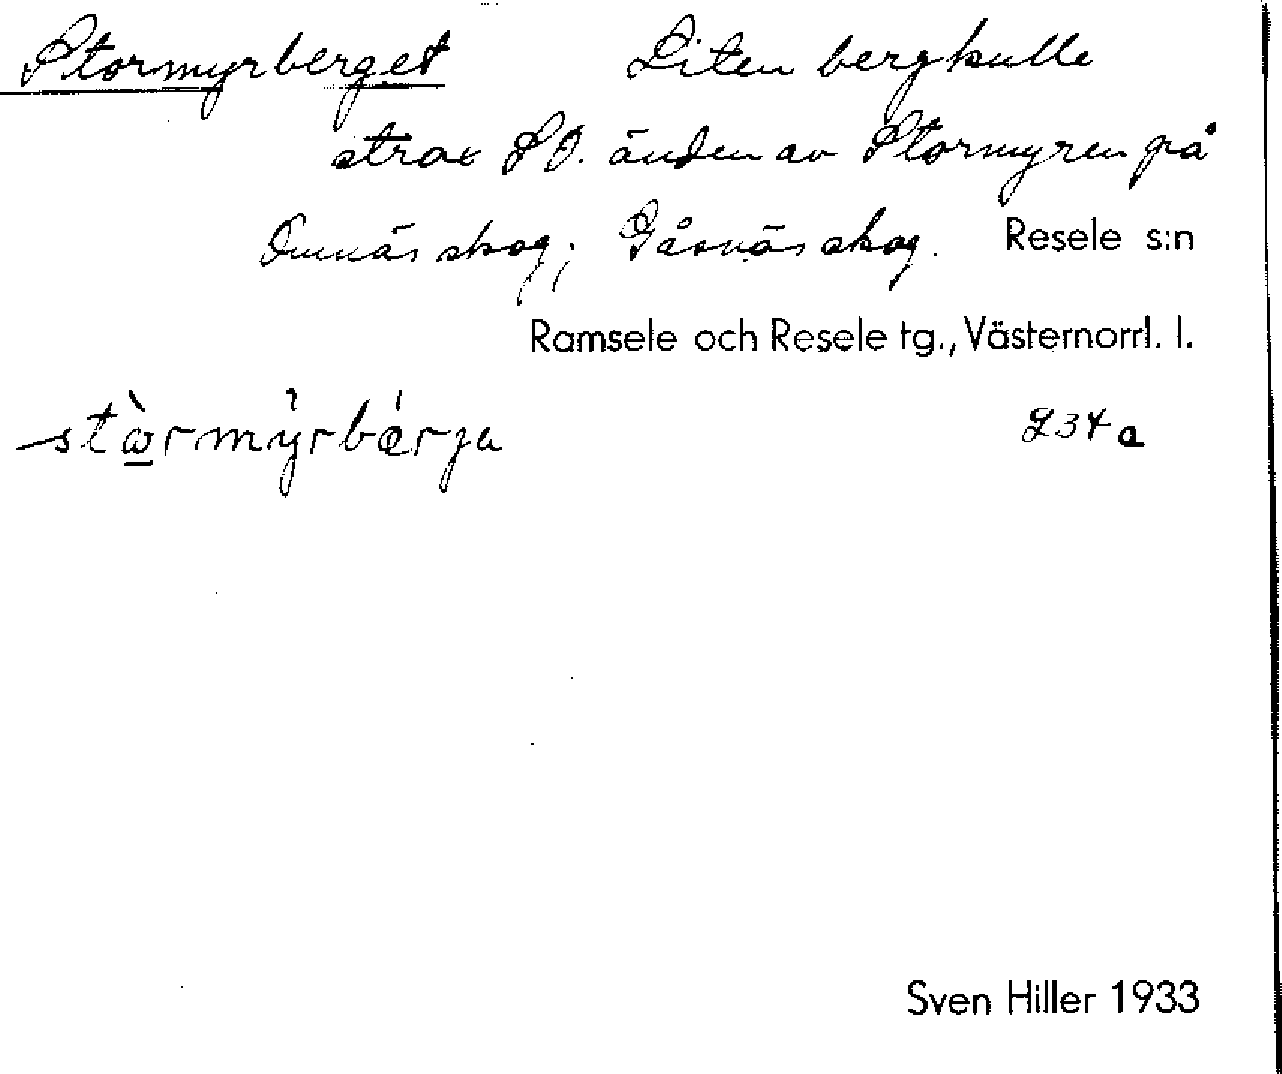 Stormyrberget Liten bergkulle
strax SO. änden av Stormyren på
Omnäs skog; Gåsnäs skog. Resele s:n
Ramsele och Resele tg., Västernorrl. l.
stòrmỳrbǽrja 234a
Sven Hiller 1933